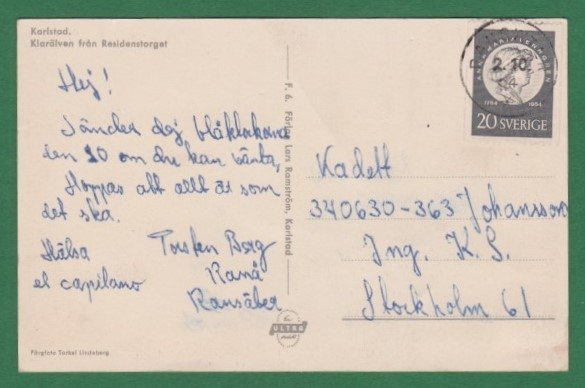 Karlstad.
Klarälven från Residenstorget
Hej!
Sänder dej blåklockorna
den 10 om du kan vänta,
Hoppas att allt är som
det ska.
Hälsa
el capitano
Torsten Borg
Ranå
Ransäter
F. 6. Förlag Lars Ramström, Karlstad
Färgfoto Torkel Lindeberg
ULTRA
2.10.
ANNA MARIA LENNGREN
1754 1954
20 SVERIGE
Kadett
340630-363 Johansson
Ing. K. S.
Stockholm 61